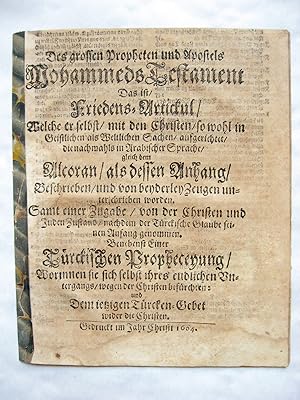 Des grossen Propheten und Apostels
Mohammeds Testament
Das ist/
Friedens-Artickul/
Welche er selbst/ mit den Christen/ so wohl in
Geistlichen als Weltlichen Sachen/ auffgerichtet/
die nachmahls in Arabischer Sprache/
gleich dem
Alcoran/ als dessen Anhang/
Beschrieben/ und von beyderley Zeugen un-
terschrieben worden.
Samt einer Zugabe/ von der Christen und
Juden Zustand/ nachdem der Türckische Glaube sei-
nen Anfang genommen.
Benebenst Einer
Türckischen Propheceyung/
Worinnen sie sich selbst ihres endlichen Vn-
tergangs/ wegen der Christen befürchten:
und
Dem ietzigen Türcken-Gebet
wider die Christen.
Gedruckt im Jahr Christi 1664.